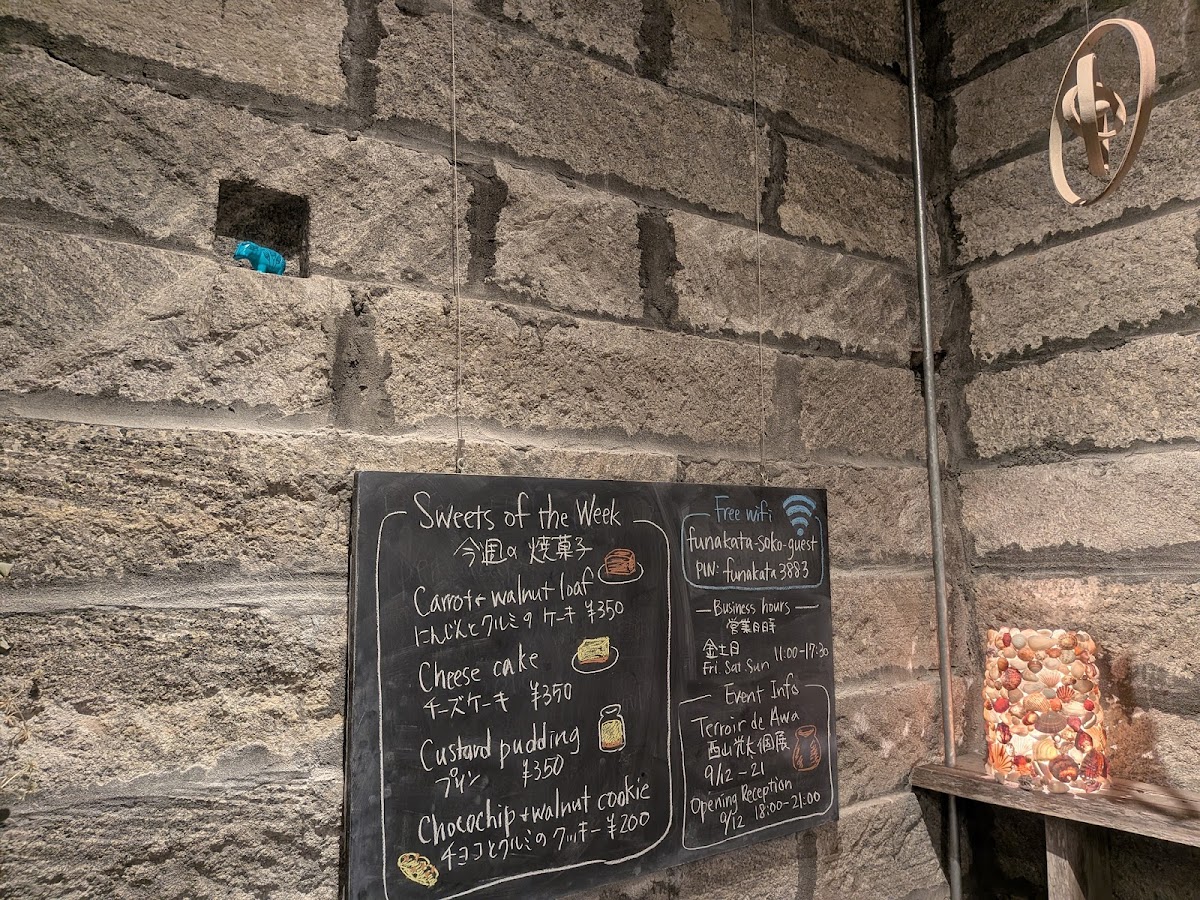 Sweets of the Week
今週の焼菓子
Carrot+walnut loaf
にんじんとクルミのケーキ ¥350
Cheese cake
チーズケーキ ¥350
Custard pudding
プリン ¥350
Chocochip+walnut cookie
チョコとクルミのクッキー ¥200
Free wifi
funakata-soko-guest
PIN: funakata3883
Business hours
営業日時
金土日
Fri. Sat. Sun 11:00-17:30
Event Info
Terroir de Awa
西山光太個展
9/12-21
Opening Reception
9/12 18:00-21:00